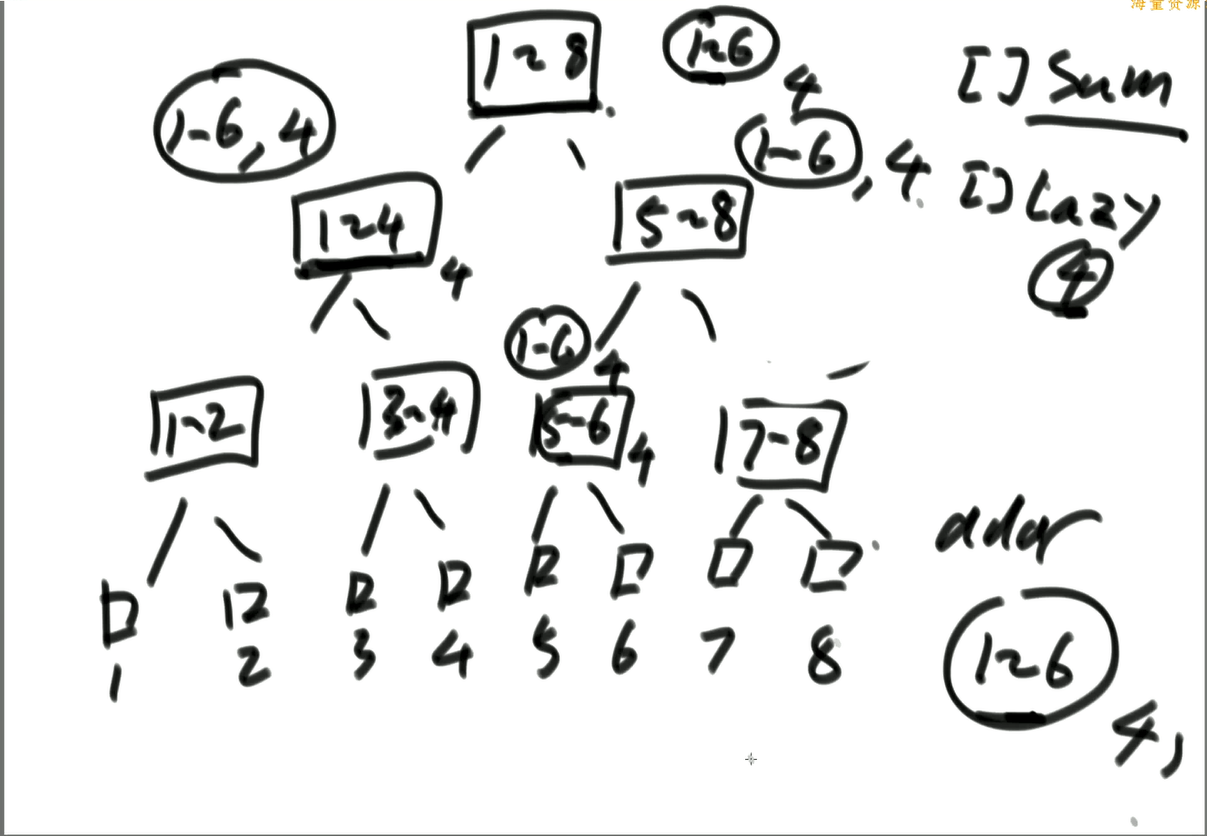 海量资源
1~8
1~6
4
[] Sum
1-6, 4
1-6, 4
[] Lazy
4
1~4
4
5~8
1-6
4
1-2
3-4
5-6
4
7-8
add
1 2 3 4 5 6 7 8
1~6
4,